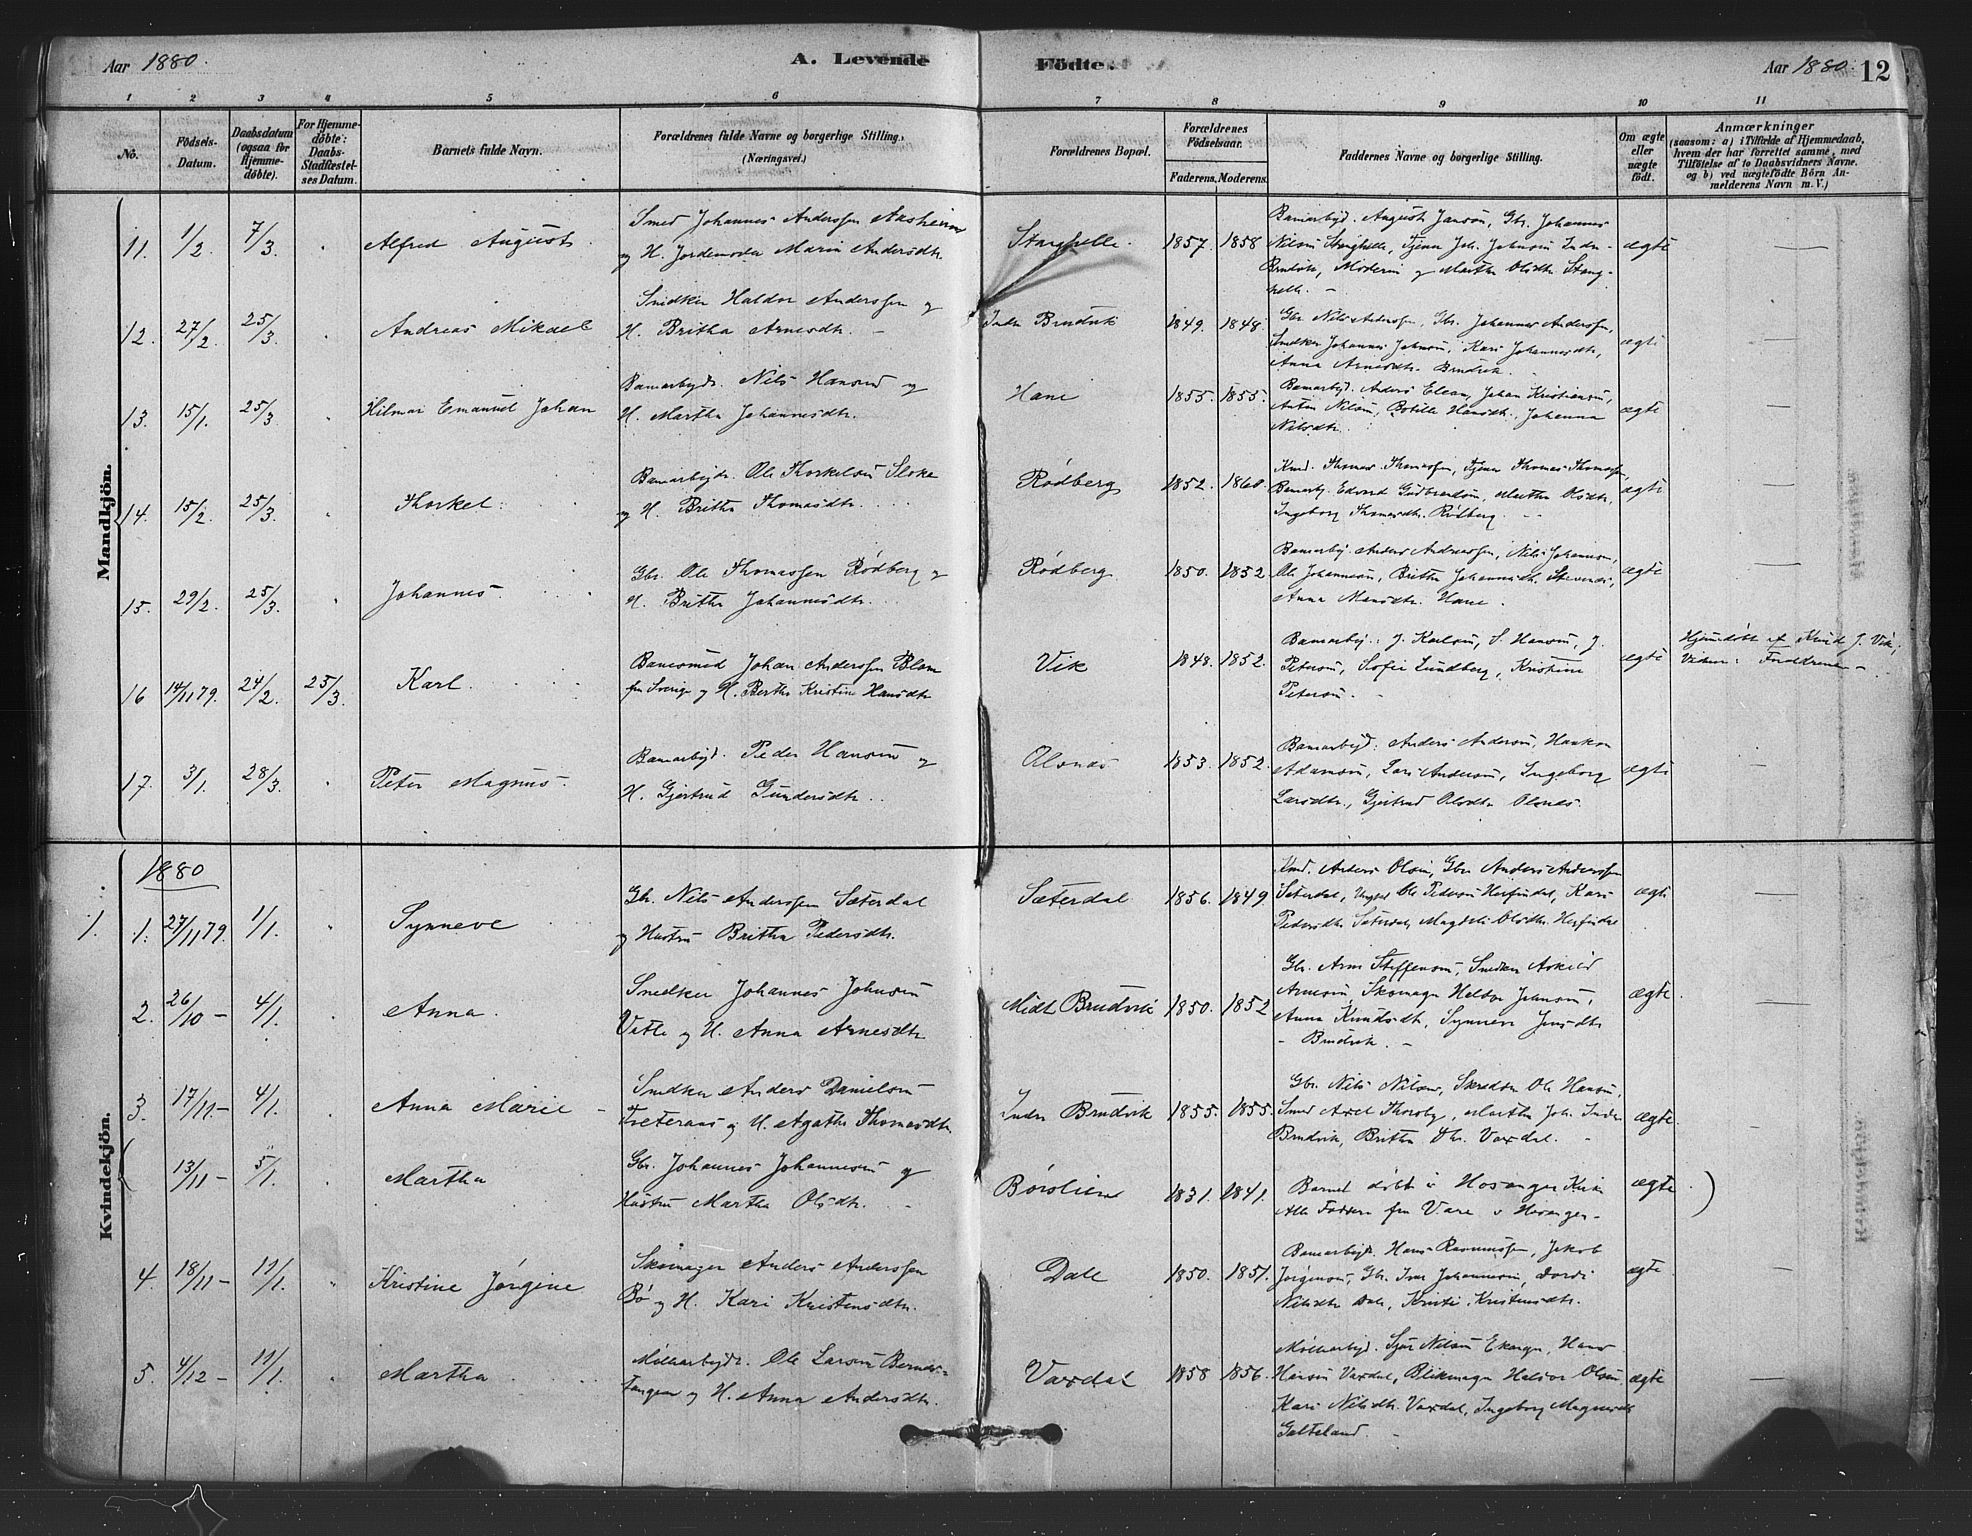 Aar 1880.
A. Levende Födte.
Aar 1880.
12
1 2 3 4 5 6 7 8 9 10 11
No.
Födsels-Datum.
Daabsdatum (ogsaa for Hjemme-döbte).
For Hjemme-döbte: Daabs-Stadfæstel-ses Datum.
Barnets fulde Navn.
Forældrenes fulde Navne og borgerlige Stilling. (Næringsvei.)
Forældrenes Bopæl.
Forældrenes Födselsaar.
Faderens. Moderens.
Faddernes Navne og borgerlige Stilling.
Om ægte eller uægte födt.
Anmærkninger
(saasom: a) i Tilfælde af Hjemmedaab, hvem der har forrettet samme, med Tilföielse af to Daabsvidners Navne. og b) ved uægtefödte Börn An-melderens Navn m. V.)
Mandkjön.
11. 1/2. 7/3. Alfred August.
Smed Johannes Anderssen
og H. Jordemoder Maria Andersdtr.
Stanghelle. 1857. 1858
Banearbgd. August Jansøn, Gbr. Johannes
Nilsøn Stanghelle, Tjener Joh. Johnsøn Indr-
Brudvik, og Martha Olsdtr Stang-
helle. -
ægte
12. 27/2. 25/3. Andreas Mikael
Snedker Haldor Anderssen og
H. Britha Arnesdtr. -
Indr Brudvik 1849. 1848.
Gbr. Nils Anderssen, Gbr. Johannes Anderssen,
Snedker Johannes Johnsøn, Kari Johannesdtr,
Anna Arnesdtr. Brudvik.
ægte
13. 15/1. 25/3. Hilmar Emanuel Johan
Banearbgdr. Nils Hansen og
H. Martha Johannesdtr.
Hane 1855. 1855.
Banearbgd. Anders , Johan Kristiansøn,
Anton Nilsøn, Botille Hansdtr., Johanna
Nilsdtr.
ægte
14. 15/2. 25/3. Thorkel.
Banearbgdr. Ole Thorkelsøn
og H. Britha Thomasdtr.
Rødberg 1852. 1860.
Knd. Thomas Thomassen, Tjener Thomas Thomassen,
Banearbg. Edvard Gudbrandsøn, Martha Olsdtr,
Ingeborg Thomasdtr. Rødberg.
ægte
15. 29/2. 25/3. Johannes.
Gbr. Ole Thomassen Rødberg og
H. Britha Johannesdtr.
Rødberg 1850. 1852.
Banearbg. Anders Andreassen, Nils Johannesøn,
Ole Johannesøn, Britha Johannesdtr. ,
Anna Monsdtr. Hane.
ægte
16 14/11 79. 24/2. 25/3. Karl.
Banesmed Johan Anderssen Blom
fra Sverige og H. Berthe Kristine Hansdtr
Vik 1848. 1852.
Banearbg.: J. Karlsøn, S. Hansøn, J.
Petersøn, Sofie Lundberg, Kristine
Petersøn. -
ægte
Hjemdøbt af Knud J. Vik;
Vidner: Forældrene -
17. 3/1. 28/3. Peter Magnus.
Banearbgd. Peder Hansøn og
H. Gjertrud Gundersdtr.
Olsnæs 1853. 1852.
Banearbgd: Anders Andersøn, Haakon
Adamsøn, Lars Andersøn, Ingeborg
Larsdtr., Gjertrud Olsdtr Olsnes.
ægte
Kvindekjön.
1880
1. 1. 27/11 79. 1/1. Synneve
Gbr. Nils Anderssen Sæterdal
og Hustru Britha Pedersdtr.
Sæterdal 1856. 1849.
Knd. Anders Olsøn, Gbr Anders Anderssen
Sæterdal, Ungkl Ole Pedersøn Herfindal, Kari
Pedersdtr Sæterdal, Magdeli Olsdtr Herfindal
ægte
2. 26/10 - 4/1. Anna.
Snedker Johannes Johnsøn
Vatle og H. Anna Arnesdtr
Midt Brudvik 1850. 1852
Gbr. Arne Steffensøn, Snedker Askild
Arnesøn, Skomager Haldor Johnsøn,
Anna Knudsdtr, Synneve Jensdtr
- Brudvik. -
ægte.
3. 17/11 - 4/1. Anna Marie
Snedker Anders Danielsøn
Tveteraas og H. Agathe Thomasdtr.
Indr Brudvik 1855. 1855.
Gbr. Nils Nilsøn, Skrædder Ole Hansøn,
Smed Axel Thorsby, Martha Joh. Indre
Brudvik, Britha Vaxdal.
ægte.
13/11 - 5/1. Martha
Gbr. Johannes Johannesøn og
Hustru Martha Olsdtr.
Børslien 1831. 1841.
Barnet døbt i Hosanger Kirke
Alle Faddere fra Vare i Hosanger -
ægte. )
4. 18/11 - 11/1. Kristine Jørgine
Skomager Anders Anderssen
Bø og H. Kari Kristensdtr.
Dale 1850. 1851.
Banearbgdr. Hans Rasmussen, Jakob
Jørgensøn, Gbr. Iver Johannesøn, Dordi
Nilsdtr Dale, Kristi Kristensdtr.
ægte
5. 4/12 - 11/1. Martha
Møllearbgdr. Ole Larsøn Bernes-
Tangen og H. Anna Andersdtr.
Vaxdal 1858 1856.
Møllearbgd. Sjur Nilsøn , Hans
Hansøn Vaxdal, Blikmager Haldor Olsøn,
Kari Nilsdtr. Vaxdal, Ingeborg Magnesdtr
ægte